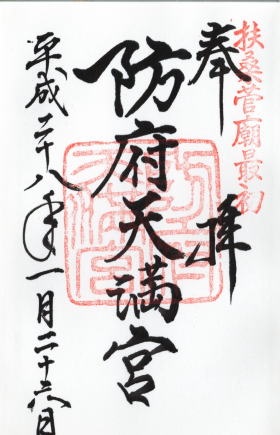 扶桑菅廟最初
奉拝
防府天満宮
平成二十八年一月二十六日